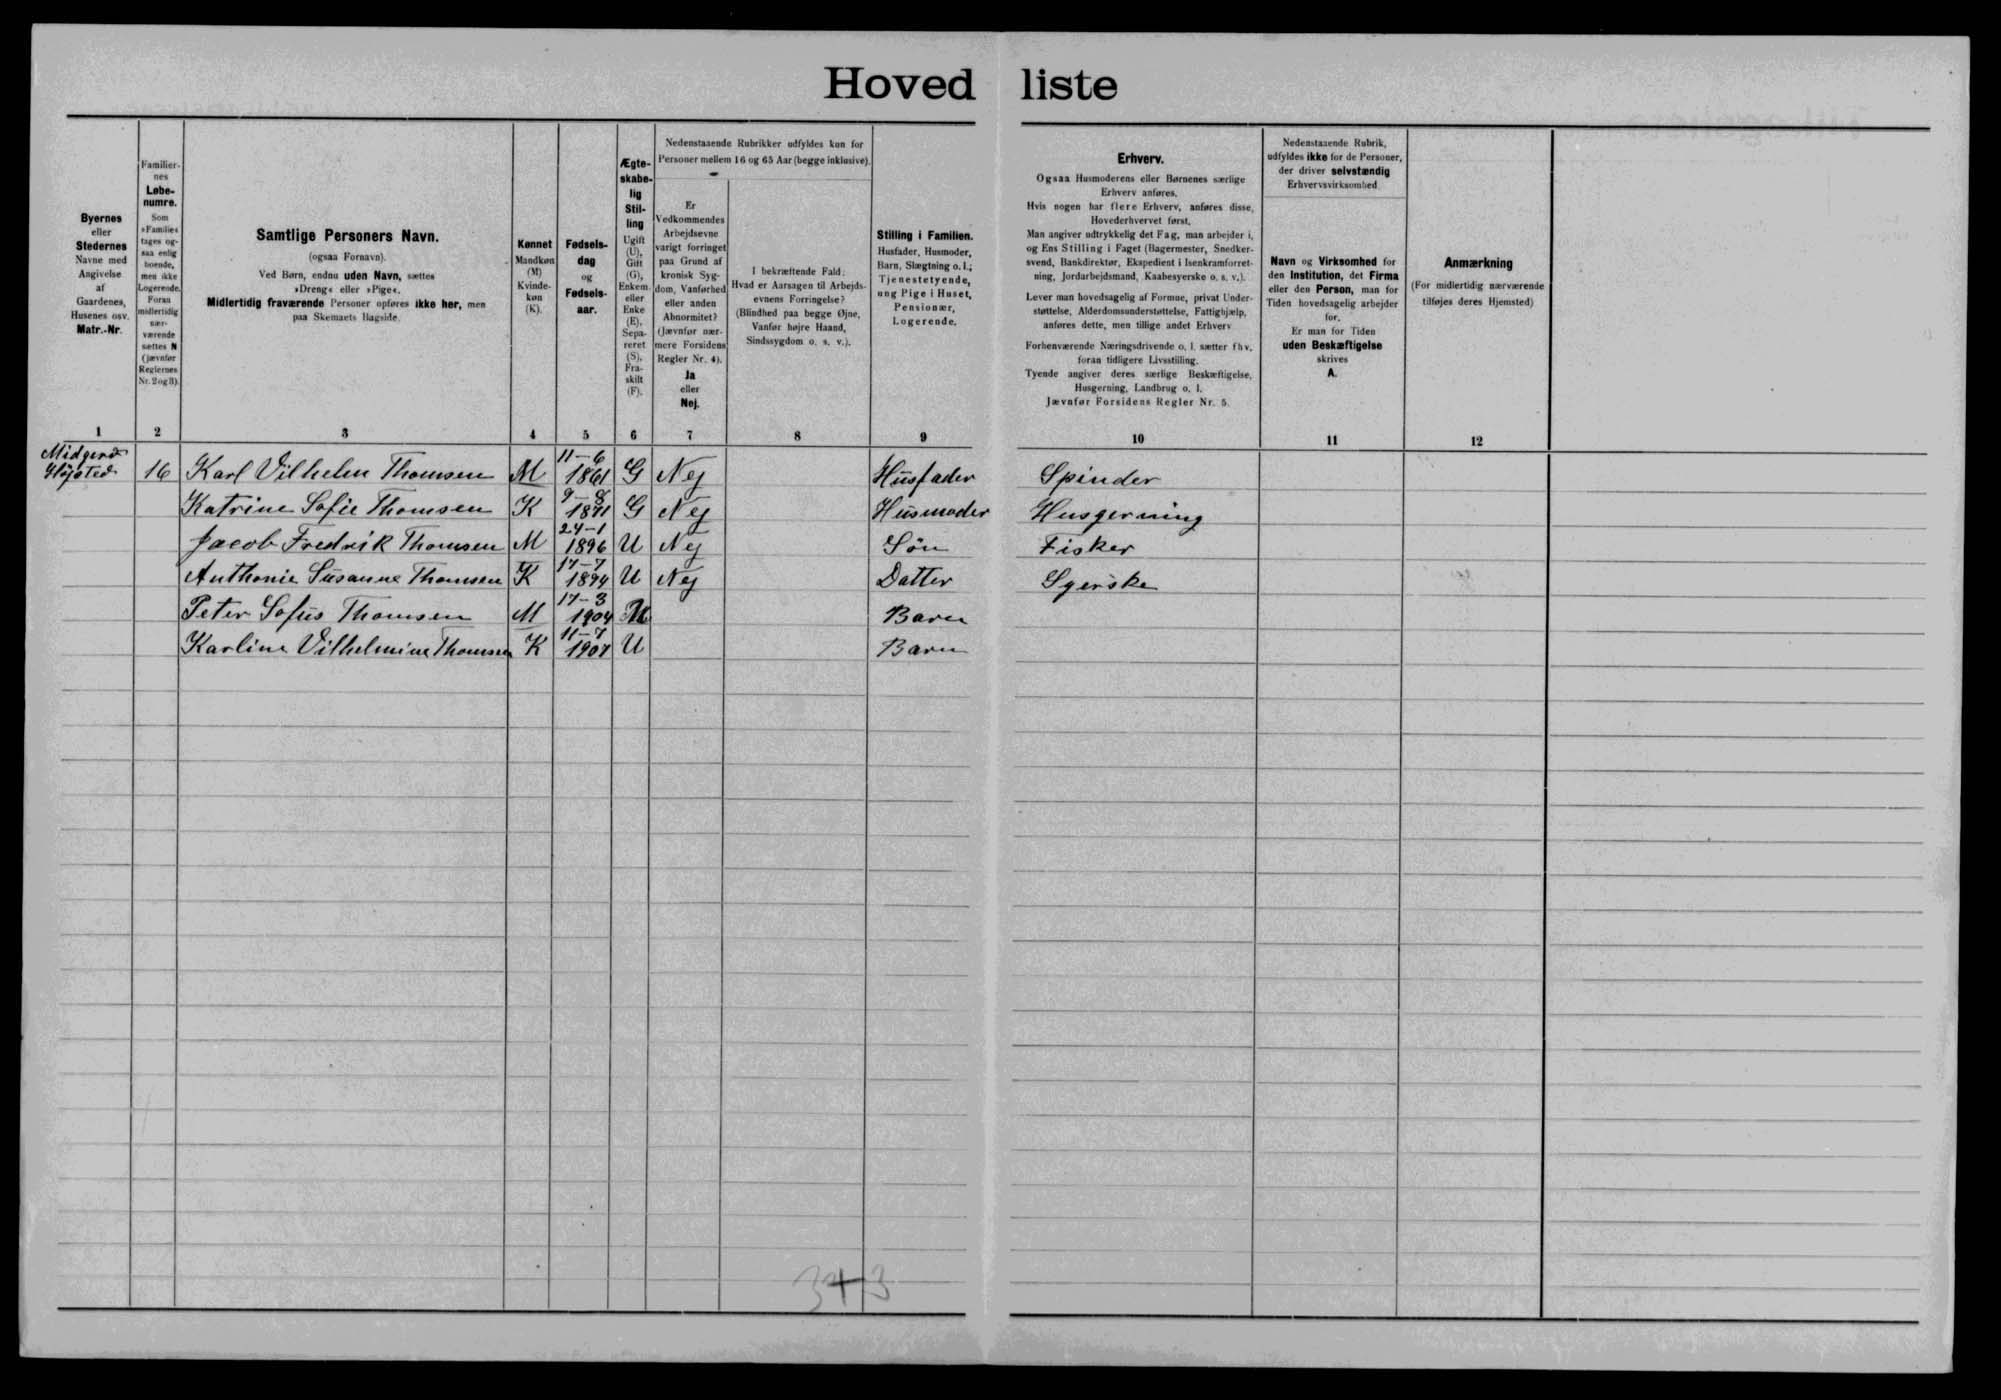 Hovedliste
Byernes
eller
Stedernes
Navne med
Angivelse
af
Gaardenes,
Husenes osv.
Matr.-Nr.
1
Familier-
nes
Løbe-
numre.
Som
»Familie«
tages og-
saa enlig
boende,
men ikke
Logerende.
Foran
midlertidig
nær-
værende
sættes N
(jævnfør
Reglernes
Nr. 2 og 3).
2
Samtlige Personers Navn.
(ogsaa Fornavn).
Ved Børn, endnu uden Navn, sættes
»Dreng« eller »Pige«.
Midlertidig fraværende Personer opføres ikke her, men
paa Skemaets Bagside.
3
Kønnet
Mandkøn
(M)
Kvinde-
køn
(K).
4
Fødsels-
dag
og
Fødsels-
aar.
5
Ægte-
skabe-
lig
Stil-
ling
Ugift
(U),
Gift
(G),
Enkem.
eller
Enke
(E),
Sepa-
reret
(S),
Fra-
skilt
(F).
6
Nedenstaaende Rubrikker udfyldes kun for
Personer mellem 16 og 65 Aar (begge inklusive).
Er
Vedkommendes
Arbejdsevne
varigt forringet
paa Grund af
kronisk Syg-
dom, Vanførhed
eller anden
Abnormitet?
(Jævnfør nær-
mere Forsidens
Regler Nr. 4).
Ja
eller
Nej.
7
I bekræftende Fald:
Hvad er Aarsagen til Arbejds-
evnens Forringelse?
(Blindhed paa begge Øjne,
Vanfør højre Haand,
Sindssygdom o. s. v.).
8
Stilling i Familien.
Husfader, Husmoder,
Barn, Slægtning o. l.;
Tjenestetyende,
ung Pige i Huset,
Pensionær,
Logerende.
9
Erhverv.
Ogsaa Husmoderens eller Børnenes særlige
Erhverv anføres.
Hvis nogen har flere Erhverv, anføres disse,
Hovederhvervet først.
Man angiver udtrykkelig det Fag, man arbejder i,
og Ens Stilling i Faget (Bagermester, Snedker-
svend, Bankdirektør, Ekspedient i Isenkramforret-
ning, Jordarbejdsmand, Kaabesyerske o. s. v.).
Lever man hovedsagelig af Formue, privat Under-
støttelse, Alderdomsunderstøttelse, Fattighjælp,
anføres dette, men tillige andet Erhverv
Forhenværende Næringsdrivende o. l. sætter fhv.
foran tidligere Livsstilling.
Tyende angiver deres særlige Beskæftigelse,
Husgerning, Landbrug o. l.
Jævnfør Forsidens Regler Nr. 5.
10
Nedenstaaende Rubrik,
udfyldes ikke for de Personer,
der driver selvstændig
Erhvervsvirksomhed
Navn og Virksomhed for
den Institution, det Firma
eller den Person, man for
Tiden hovedsagelig arbejder
for.
Er man for Tiden
uden Beskæftigelse
skrives
A.
11
Anmærkning
(For midlertidig nærværende
tilføjes deres Hjemsted)
12
Midgerd
Højsted 16 Karl Vilhelm Thomsen M 11-6 1861 G Nej Husfader Spinder
Katrine Sofie Thomsen K 9-8 1871 G Nej Husmoder Husgerning
Jacob Fredrik Thomsen M 24-1 1896 U Nej Søn Fisker
Anthonie Susanne Thomsen K 17-7 1894 U Nej Datter Syerske
Peter Sofus Thomsen M 17-3 1904 Barn
Karline Vilhelmine Thomsen K 11-7 1907 U Barn
3+3